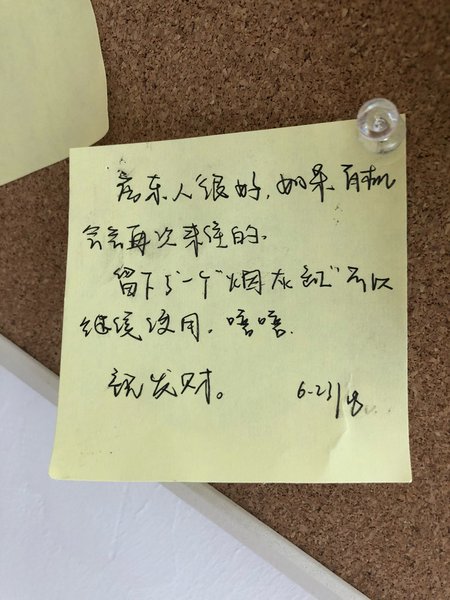 房东人很好,如果有机
会会再次来住的.
留下了一个"烟灰缸"可以
继续使用,嘻嘻.
祝发财。 6-23/18